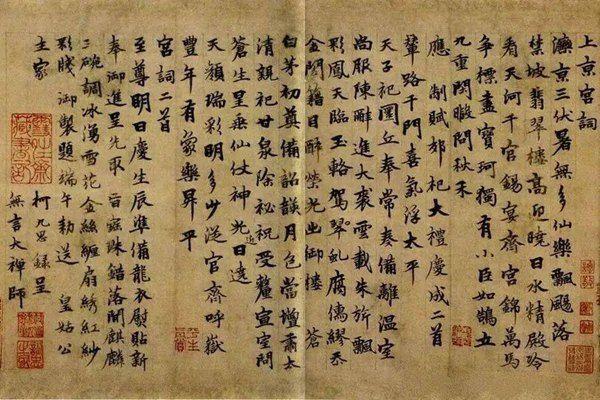 上京宮詞
灤京三伏暑無多仙樂飄颻落
禁坡翡翠樓高迎曉日水精殿冷
看天河千官錫宴齊宮錦萬馬
爭標盡寶珂獨有小臣如鵠立
九重閒暇問秋禾
應制賦郊祀大禮慶成二首
輦路千門喜氣浮太平
天子祀圜丘奉常奏備離溫室
尚服陳辭進大裘雲載朱旂飄
彩鳳天臨玉輅駕翠虬腐儒繆忝
金閨籍目醉榮光出御樓 蒼
白茅初奠備韶頀月色當壇肅太
清親祀甘泉除祕祝受釐宣室問
蒼生呈垂仙仗神光近日遶
天顏瑞彩明多少從官齊呼嶽
豐年有象樂昇平
宮詞二首
至尊明日慶生辰準備龍衣熨貼新
奉御進呈先取旨寶珠錯落間麒麟
三碗調冰湧雪花金絲纏扇綉紅紗
彩牋御製題端午勅送 皇姑公
主家
柯九思錄呈
無言大禪師